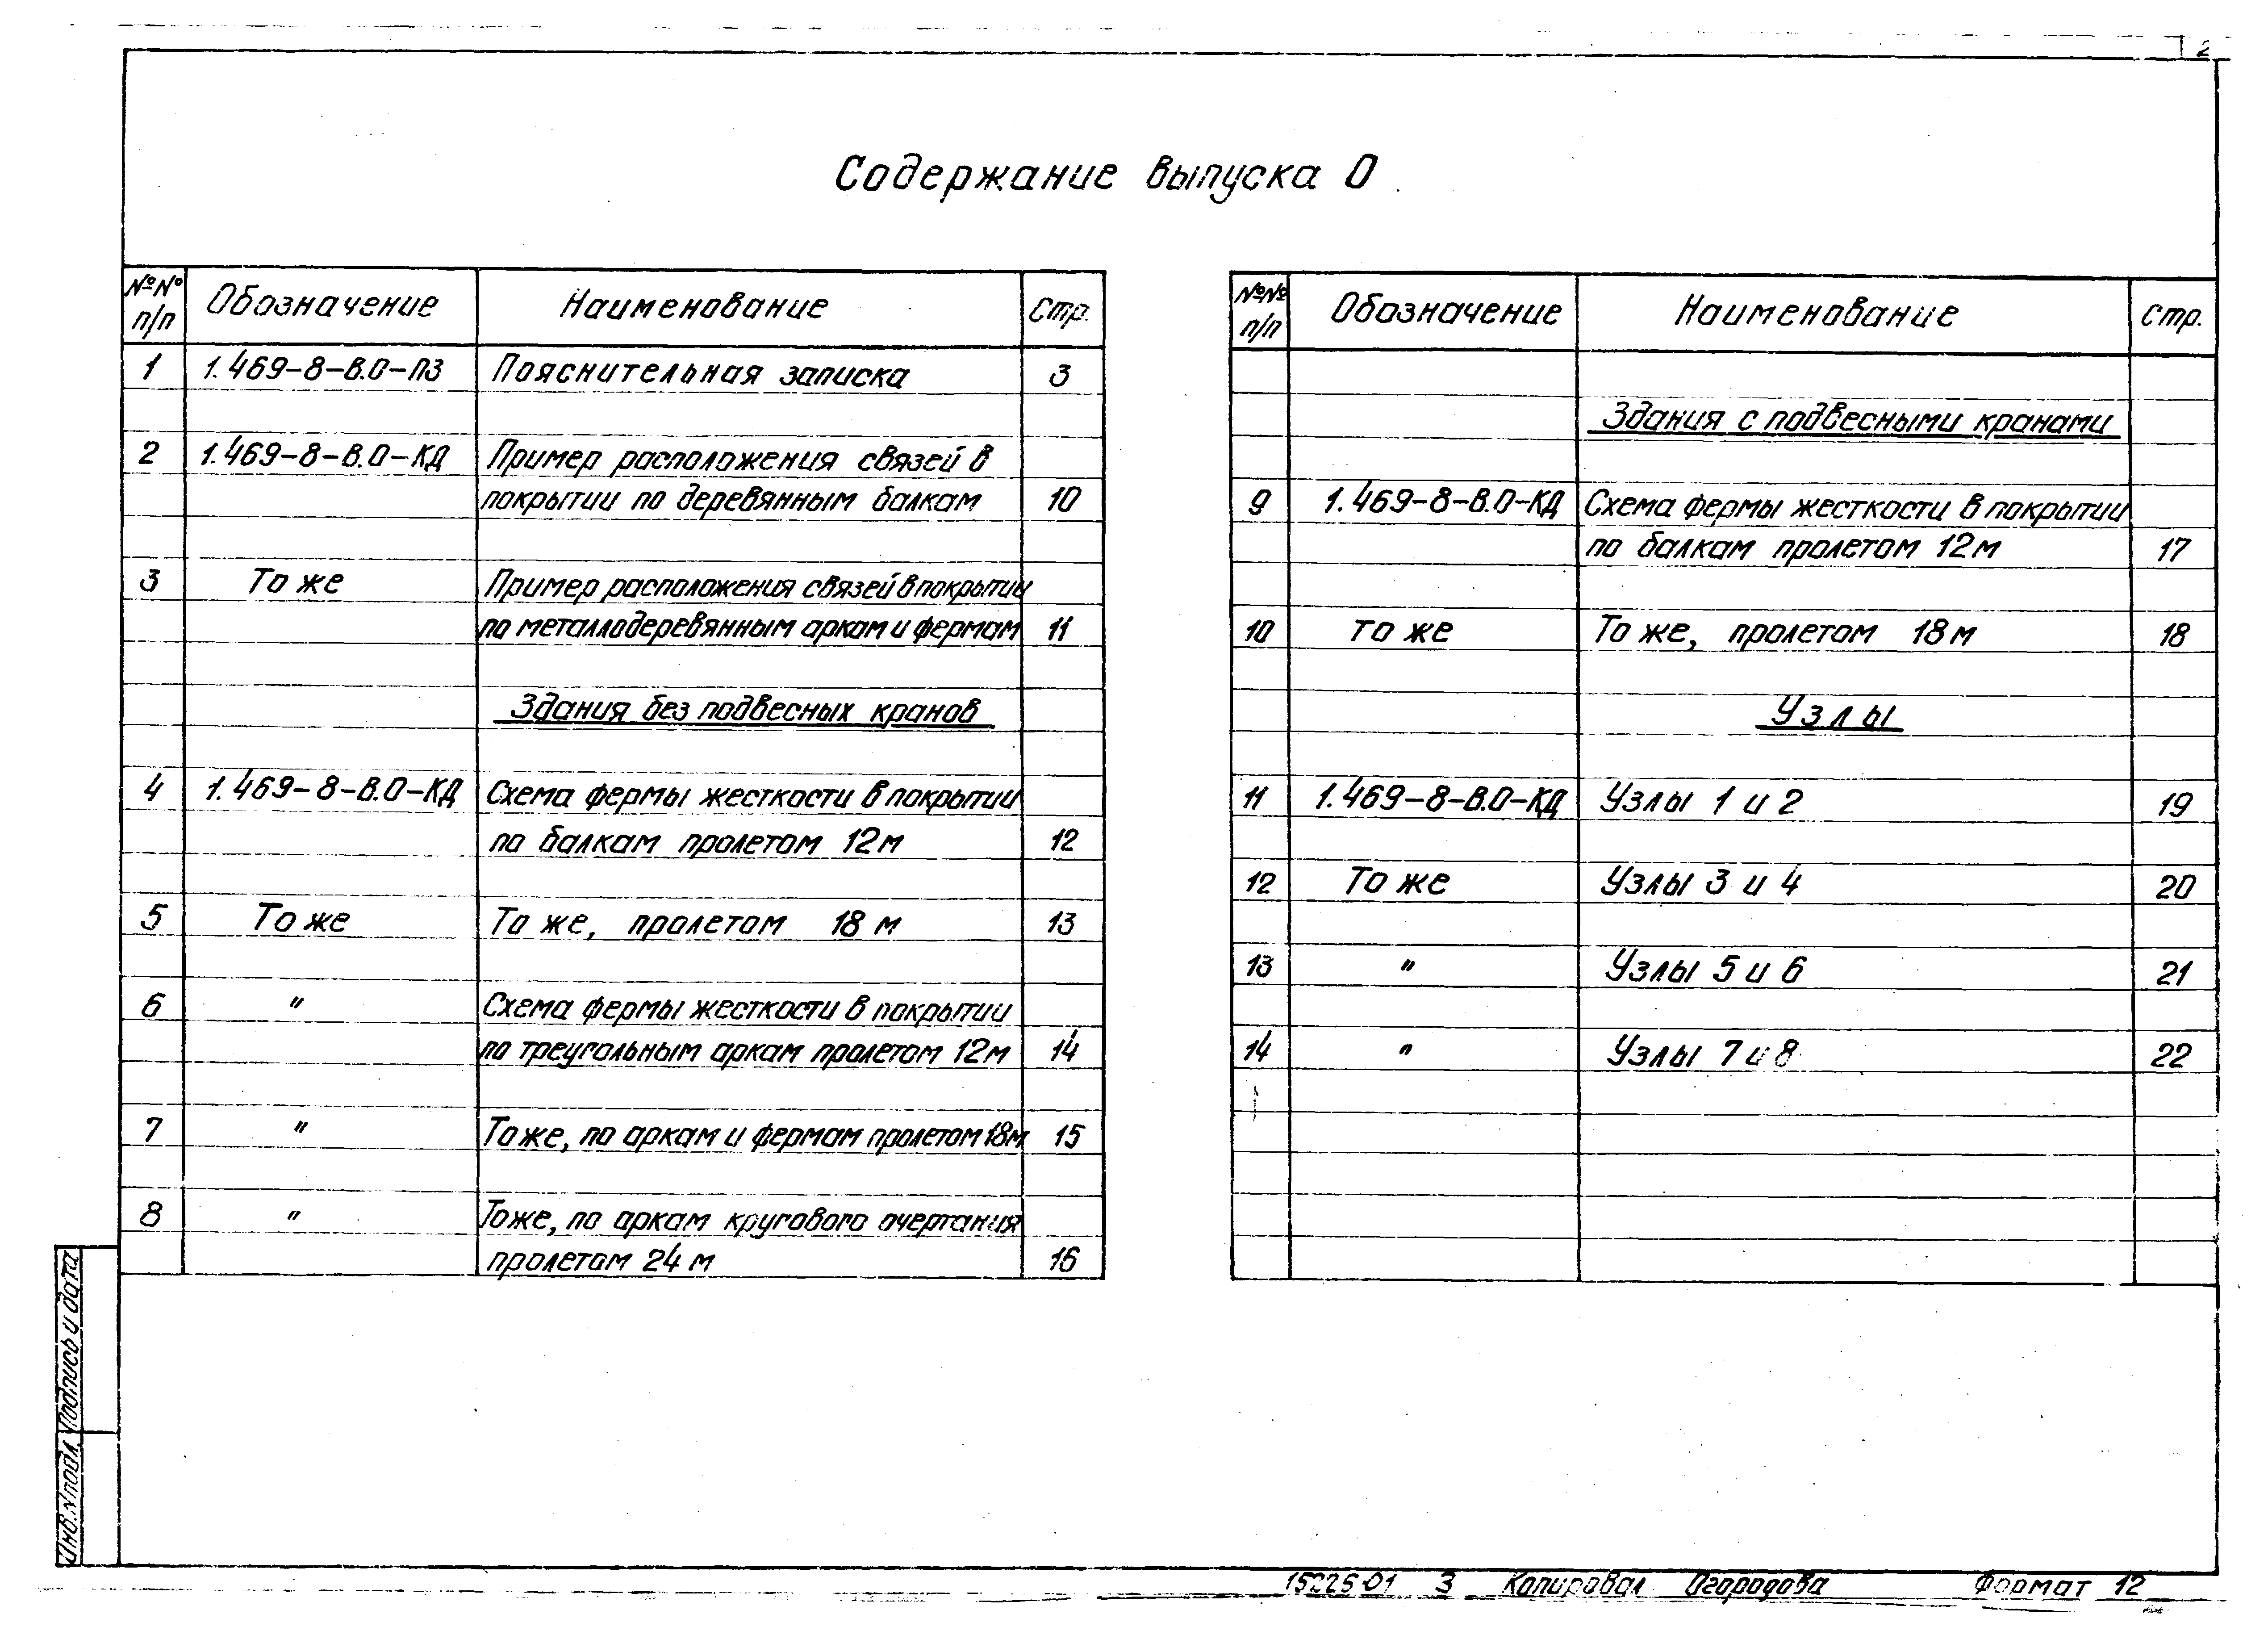 2
Содержание выпуска 0
№№ п/п Обозначение Наименование Стр.
1 1.469-8-В.0-ПЗ Пояснительная записка 3
2 1.469-8-В.0-КД Пример расположения связей в
покрытии по деревянным балкам 10
3 То же Пример расположения связей в покрытии
по металлодеревянным аркам и фермам 11
Здания без подвесных кранов
4 1.469-8-В.0-КД Схема фермы жесткости в покрытии
по балкам пролетом 12м 12
5 То же То же, пролетом 18 м 13
6 " Схема фермы жесткости в покрытии
по треугольным аркам пролетом 12м 14
7 " То же, по аркам и фермам пролетом 18м 15
8 " То же, по аркам кругового очертания
пролетом 24 м 16
№№ п/п Обозначение Наименование Стр.
Здания с подвесными кранами
9 1.469-8-В.0-КД Схема фермы жесткости в покрытии
по балкам пролетом 12м 17
10 то же То же, пролетом 18м 18
Узлы
11 1.469-8-В.0-КД Узлы 1 и 2 19
12 То же Узлы 3 и 4 20
13 " Узлы 5 и 6 21
14 " Узлы 7 и 8 22
Инв.№подл. Подпись и дата
15225-01 3 Копировал Огородова Формат 12